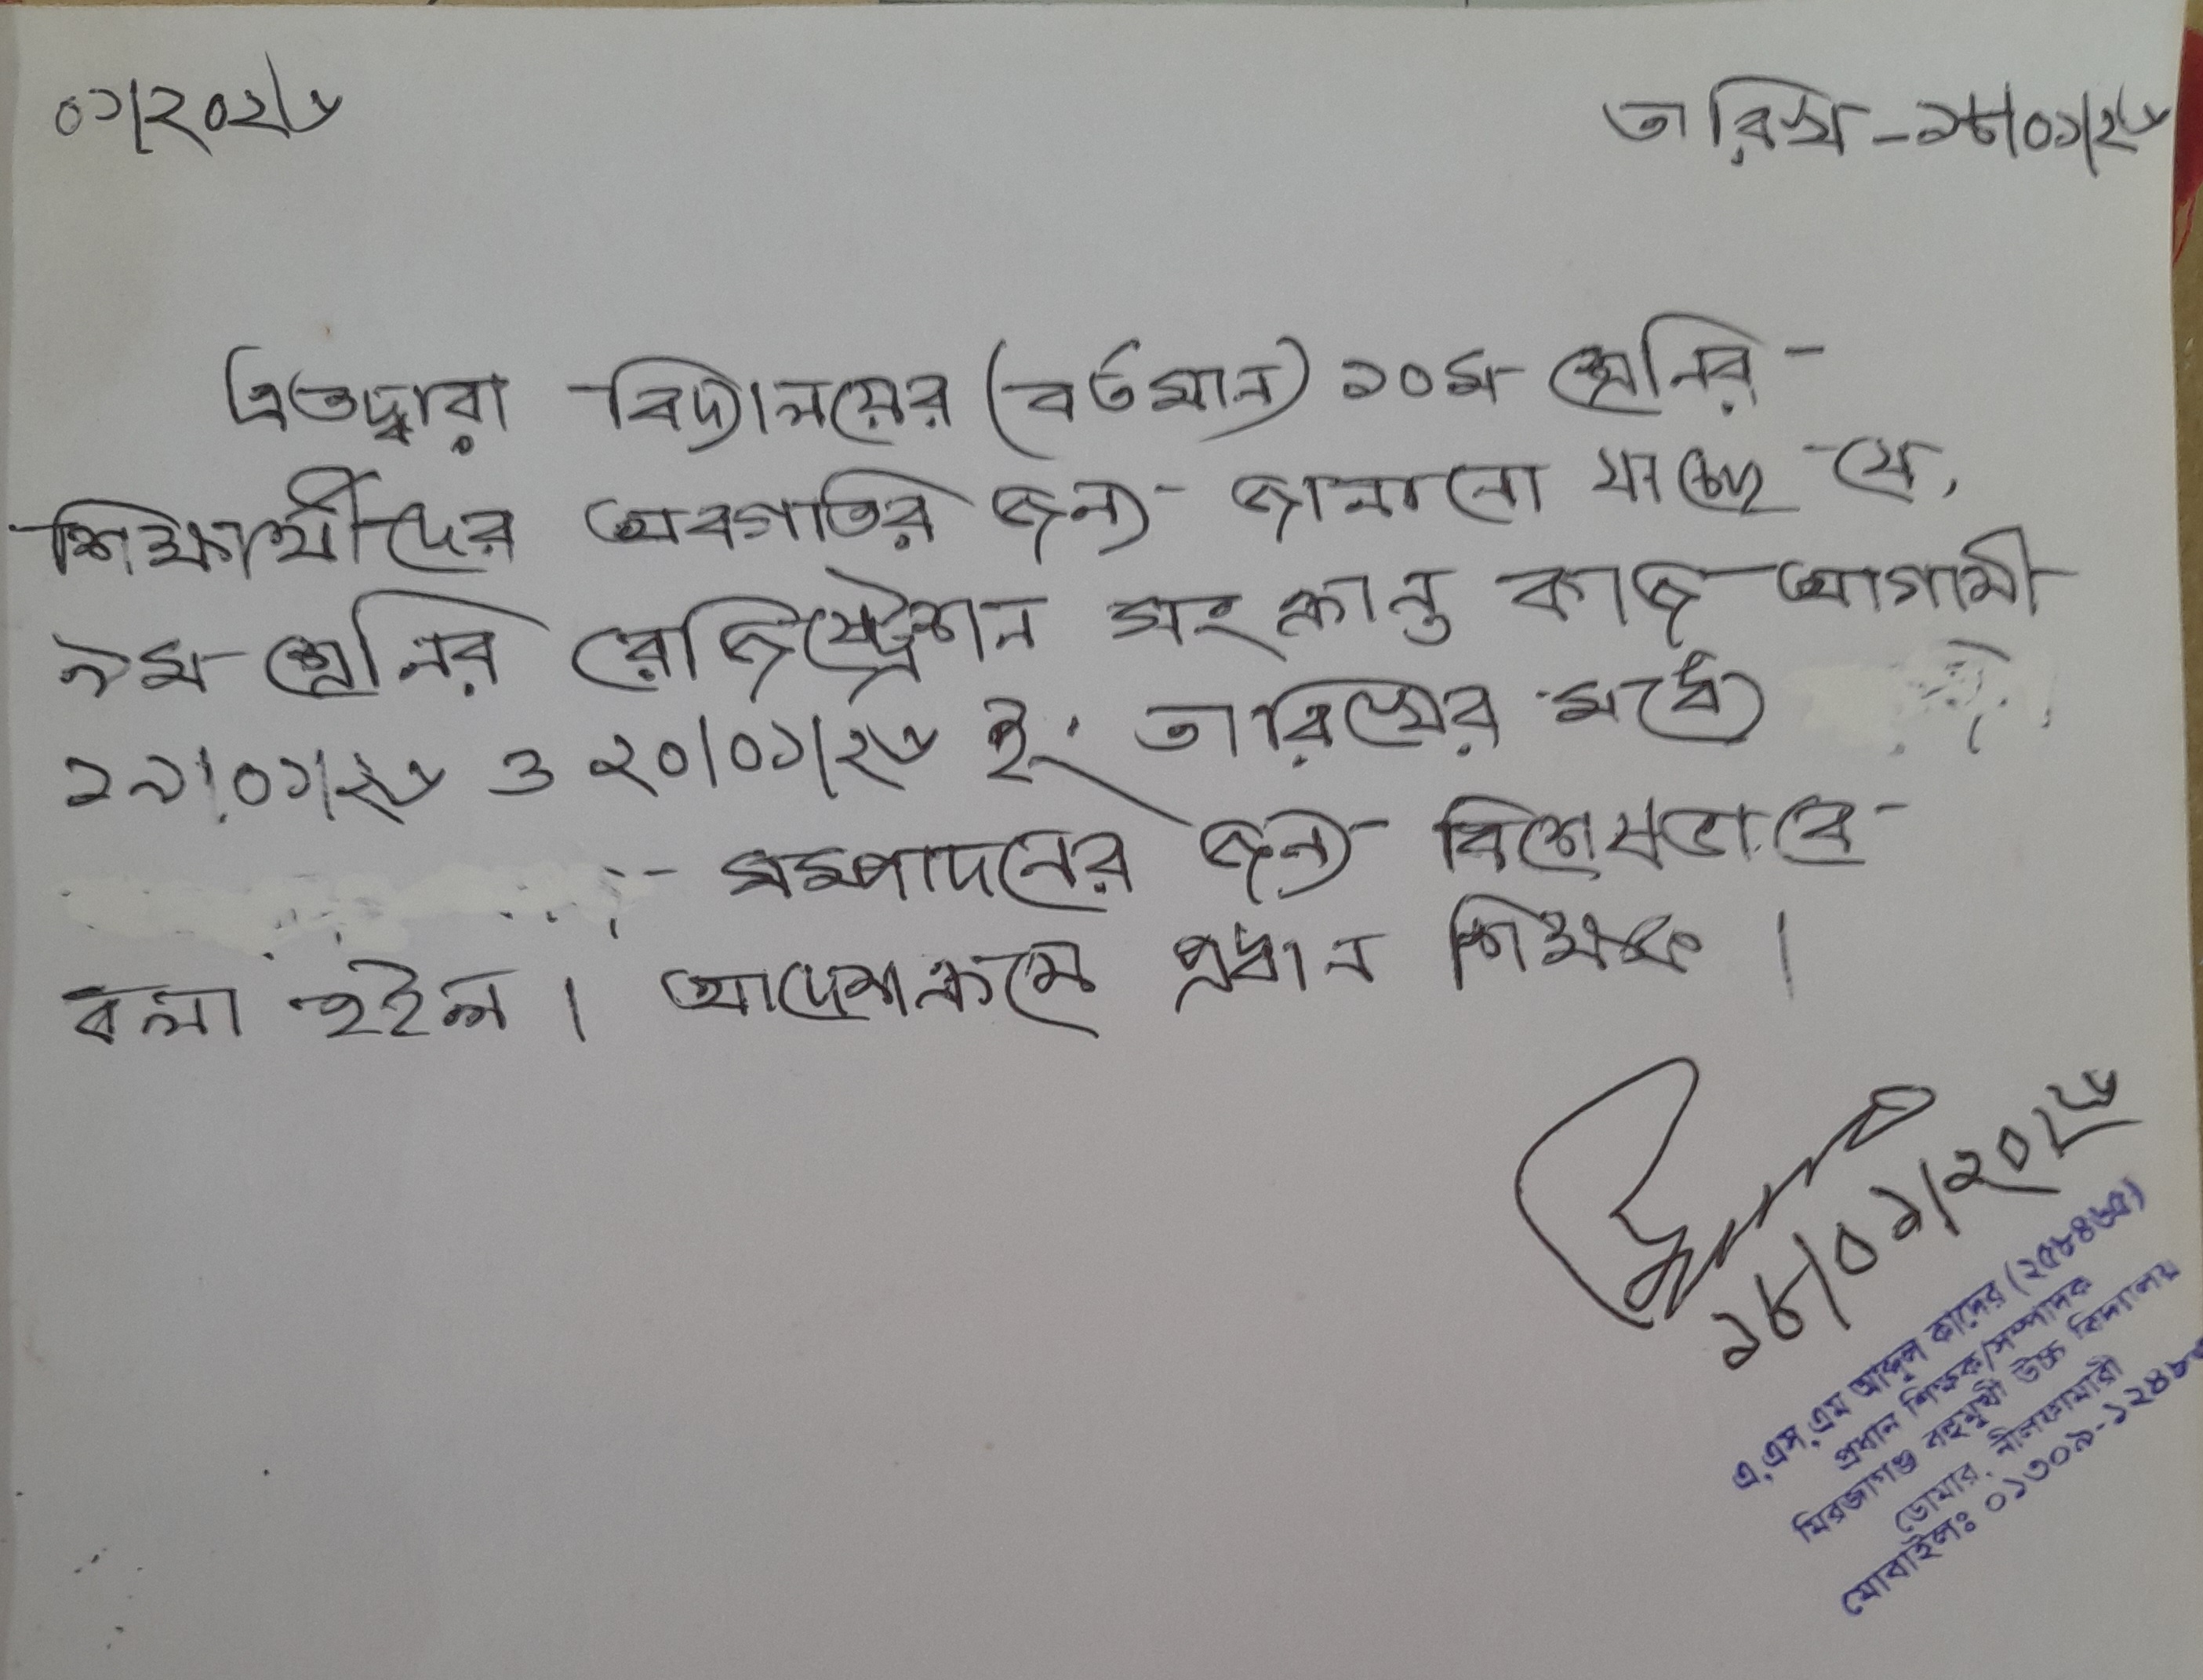 ০১/২০২৬
তারিখ - ১৮/০১/২৬
এতদ্বারা বিদ্যালয়ের (বর্তমান) ১০ম শ্রেনির
শিক্ষার্থীদের অবগতির জন্য জানানো যাচ্ছে যে,
৯ম শ্রেনির রেজিষ্ট্রেশন সংক্রান্ত কাজ আগামী
১৯/০১/২৬ ও ২০/০১/২৬ ইং তারিখের মধ্যে
সম্পাদনের জন্য বিশেষভাবে
বলা হইল। আদেশক্রমে প্রধান শিক্ষক।
১৮/০১/২০২৬
এ.এস.এম আব্দুল কাদের (২৫৮৪৬৫)
প্রধান শিক্ষক/সম্পাদক
মিরজাগঞ্জ বহুমুখী উচ্চ বিদ্যালয়
ডোমার, নীলফামারী
মোবাইলঃ ০১৩০৯-১২৪৮